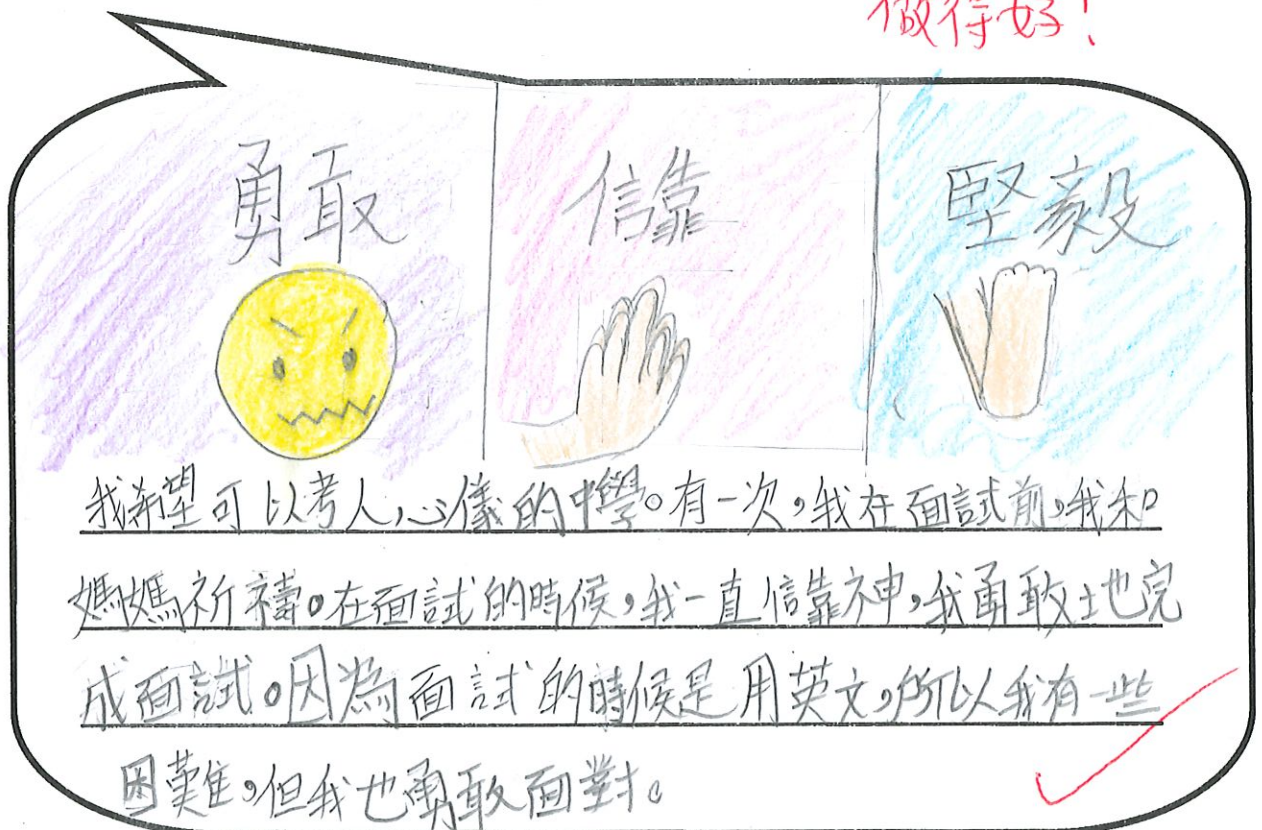 做得好！
勇敢 信靠 堅毅
我希望可以考人心儀的中學。有一次，我在面試前，我和
媽媽祈禱。在面試的時候，我一直信靠神，我勇敢地完
成面試。因為面試的時候是用英文，所以我有一些
困難，但我也勇敢面對。